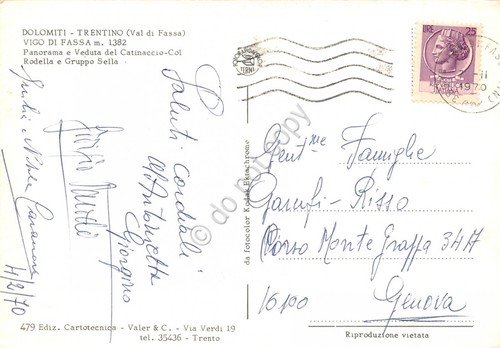 DOLOMITI - TRENTINO (Val di Fassa)
VIGO DI FASSA m. 1382
Panorama e Veduta del Catinaccio-Col
Rodella e Gruppo Sella
LIRE 25
TERNI
1970
Saluti cordali
M. Antonietta
Giorgino
4/2/70
da fotocolor Kodak Ektachrome
do not copy
Gent.me Famiglie
Garufi - Risso
Corso Monte Grappa 34/7
16100 Genova
479 Ediz. Cartotecnica - Valer & C. - Via Verdi 19
tel. 35436 - Trento
Riproduzione vietata